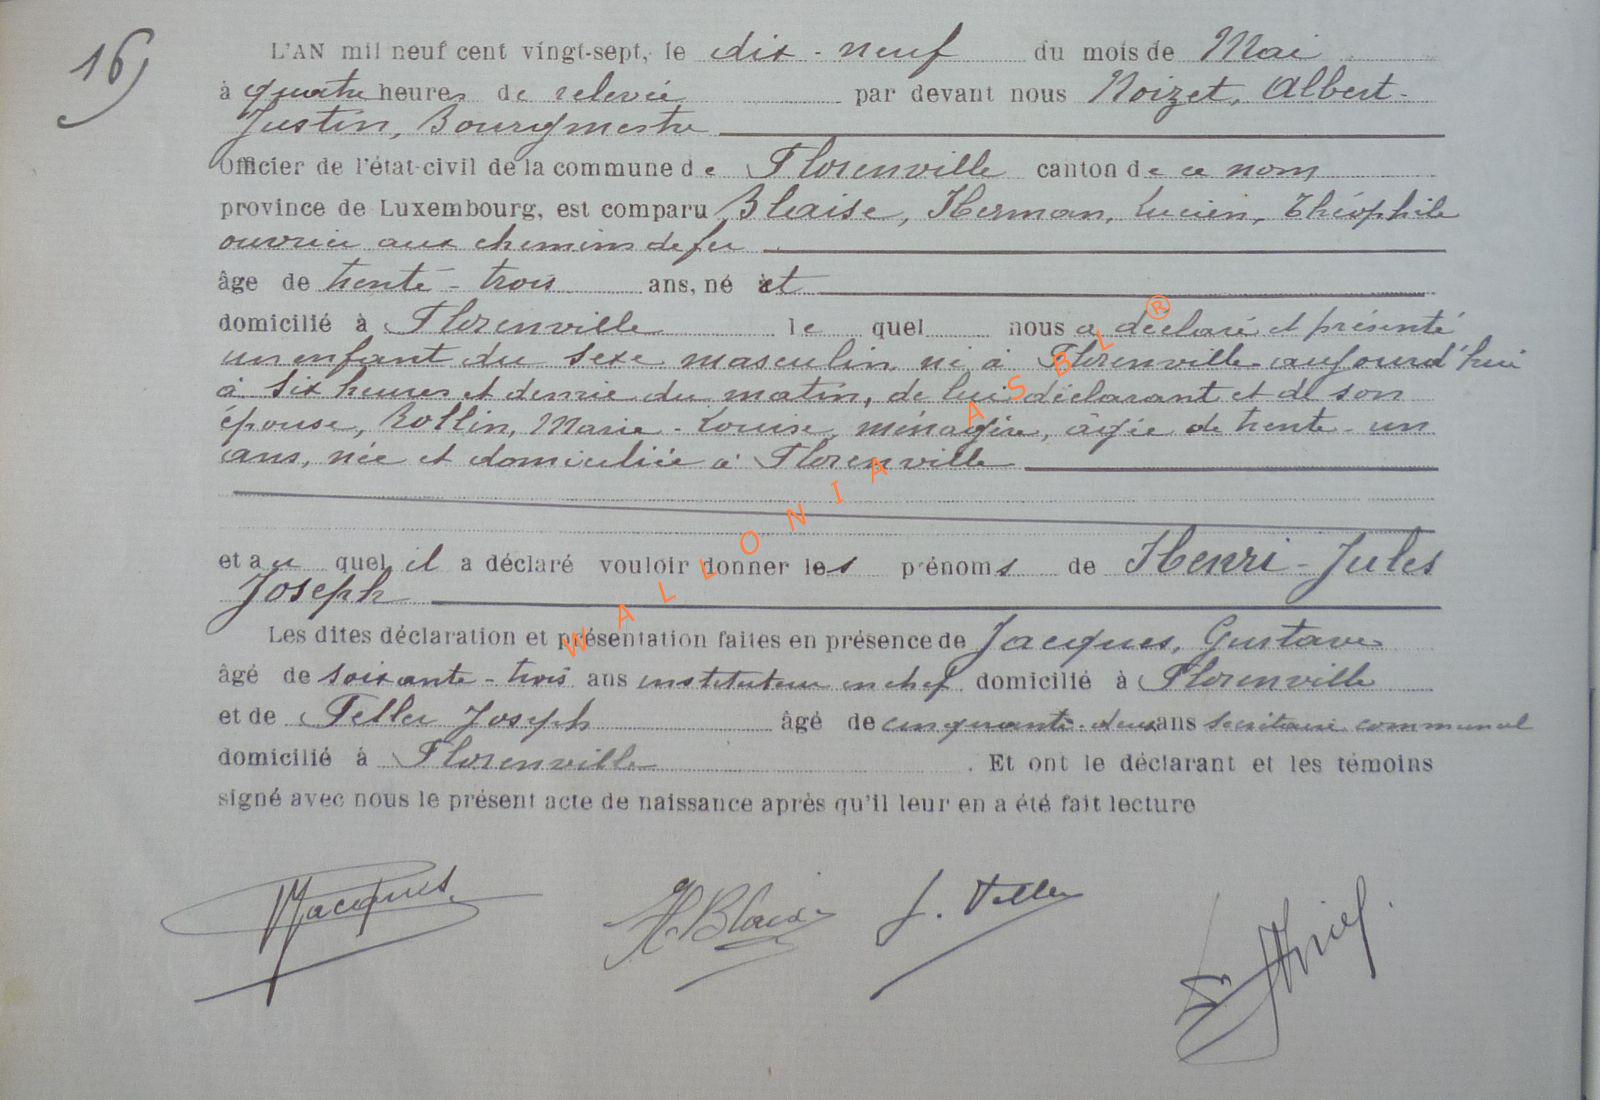 16)
L'AN mil neuf cent vingt-sept, le dix-neuf du mois de Mai
à quatre heures de relevée par devant nous Noizet, Albert-
Justin, Bourgmestre
Officier de l'état-civil de la commune de Florenville canton de ce nom
province de Luxembourg, est comparu Blaise, Herman, Lucien, Théophile
ouvrier aux chemins de fer
âge de trente-trois ans, né à et
domicilié à Florenville le quel nous a déclaré et présenté
un enfant du sexe masculin né à Florenville aujourd'hui
à six heures et demie du matin, de lui déclarant et de son
épouse, Rollin, Marie-Louise, ménagère, âgée de trente-un
ans, née et domiciliée à Florenville
et au quel il a déclaré vouloir donner les prénoms de Henri-Jules
Joseph
Les dites déclaration et présentation faites en présence de Jacques, Gustave
âgé de soixante-trois ans instituteur en chef domicilié à Florenville
et de Feller Joseph âgé de cinquante-deux ans secrétaire communal
domicilié à Florenville . Et ont le déclarant et les témoins
signé avec nous le présent acte de naissance après qu'il leur en a été fait lecture
Jacques H. Blaise J. Feller
WALLONIA ASBL ®